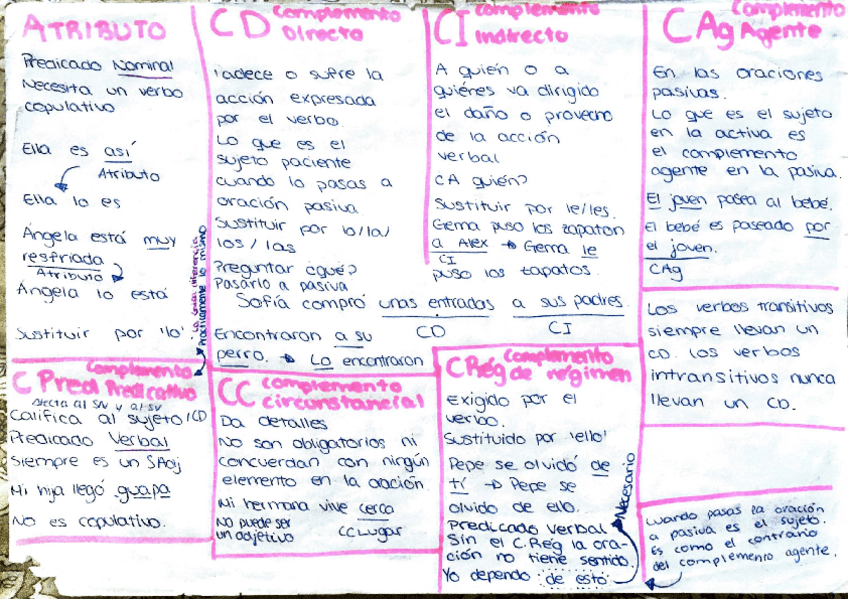 ATRIBUTO
Predicado Nominal
Necesita un verbo
copulativo
Ella es así
Atributo
Ella lo es
Ángela está muy
resfriada
Atributo
Ángela lo está
Sustituir por 'lo'
CD Complemento
Directo
adece o sufre la
acción expresada
por el verbo.
Lo que es el
sujeto paciente
cuando lo pasas a
oración pasiva
Sustituir por lo/la/
los/las
Preguntar ¿qué?
Pasarlo a pasiva
Sofía compró unas entradas a sus padres.
CD CI
Encontraron a su
perro. → Lo encontraron
CI Complemento
Indirecto
A quién o a
quiénes va dirigido
el daño o provecho
de la acción
verbal
¿A quién?
Sustituir por le/les.
Gema puso los zapatos
a Alex → Gema le
CI
puso los zapatos.
CAg Complemento
Agente
En las oraciones
pasivas.
Lo que es el sujeto
en la activa es
el complemento
agente en la pasiva.
El joven pasea al bebé.
El bebé es paseado por
el joven.
CAg
Los verbos transitivos
siempre llevan un
CD. Los verbos
intransitivos nunca
llevan un CD.
la única diferencia
Prácticamente lo mismo
C Pred Complemento
Predicativo
afecta al SN y al SV
Califica al sujeto/CD
Predicado Verbal
Siempre es un SAdj
Mi hija llegó guapa
No es copulativo.
CC Complemento
circunstancial
Da detalles
No son obligatorios ni
concuerdan con ningún
elemento en la oración.
Mi hermana vive cerca
No puede ser
un adjetivo
CCLugar
CRég Complemento
de régimen
Exigido por el
verbo.
Sustituido por 'ello'
Pepe se olvidó de
tí → Pepe se
olvido de ello.
Predicado verbal
Sin el C.Rég la ora-
ción no tiene sentido.
Yo dependo de esto
Necesario
Cuando pasas la oración
a pasiva es el sujeto.
Es como el contrario
del complemento agente.